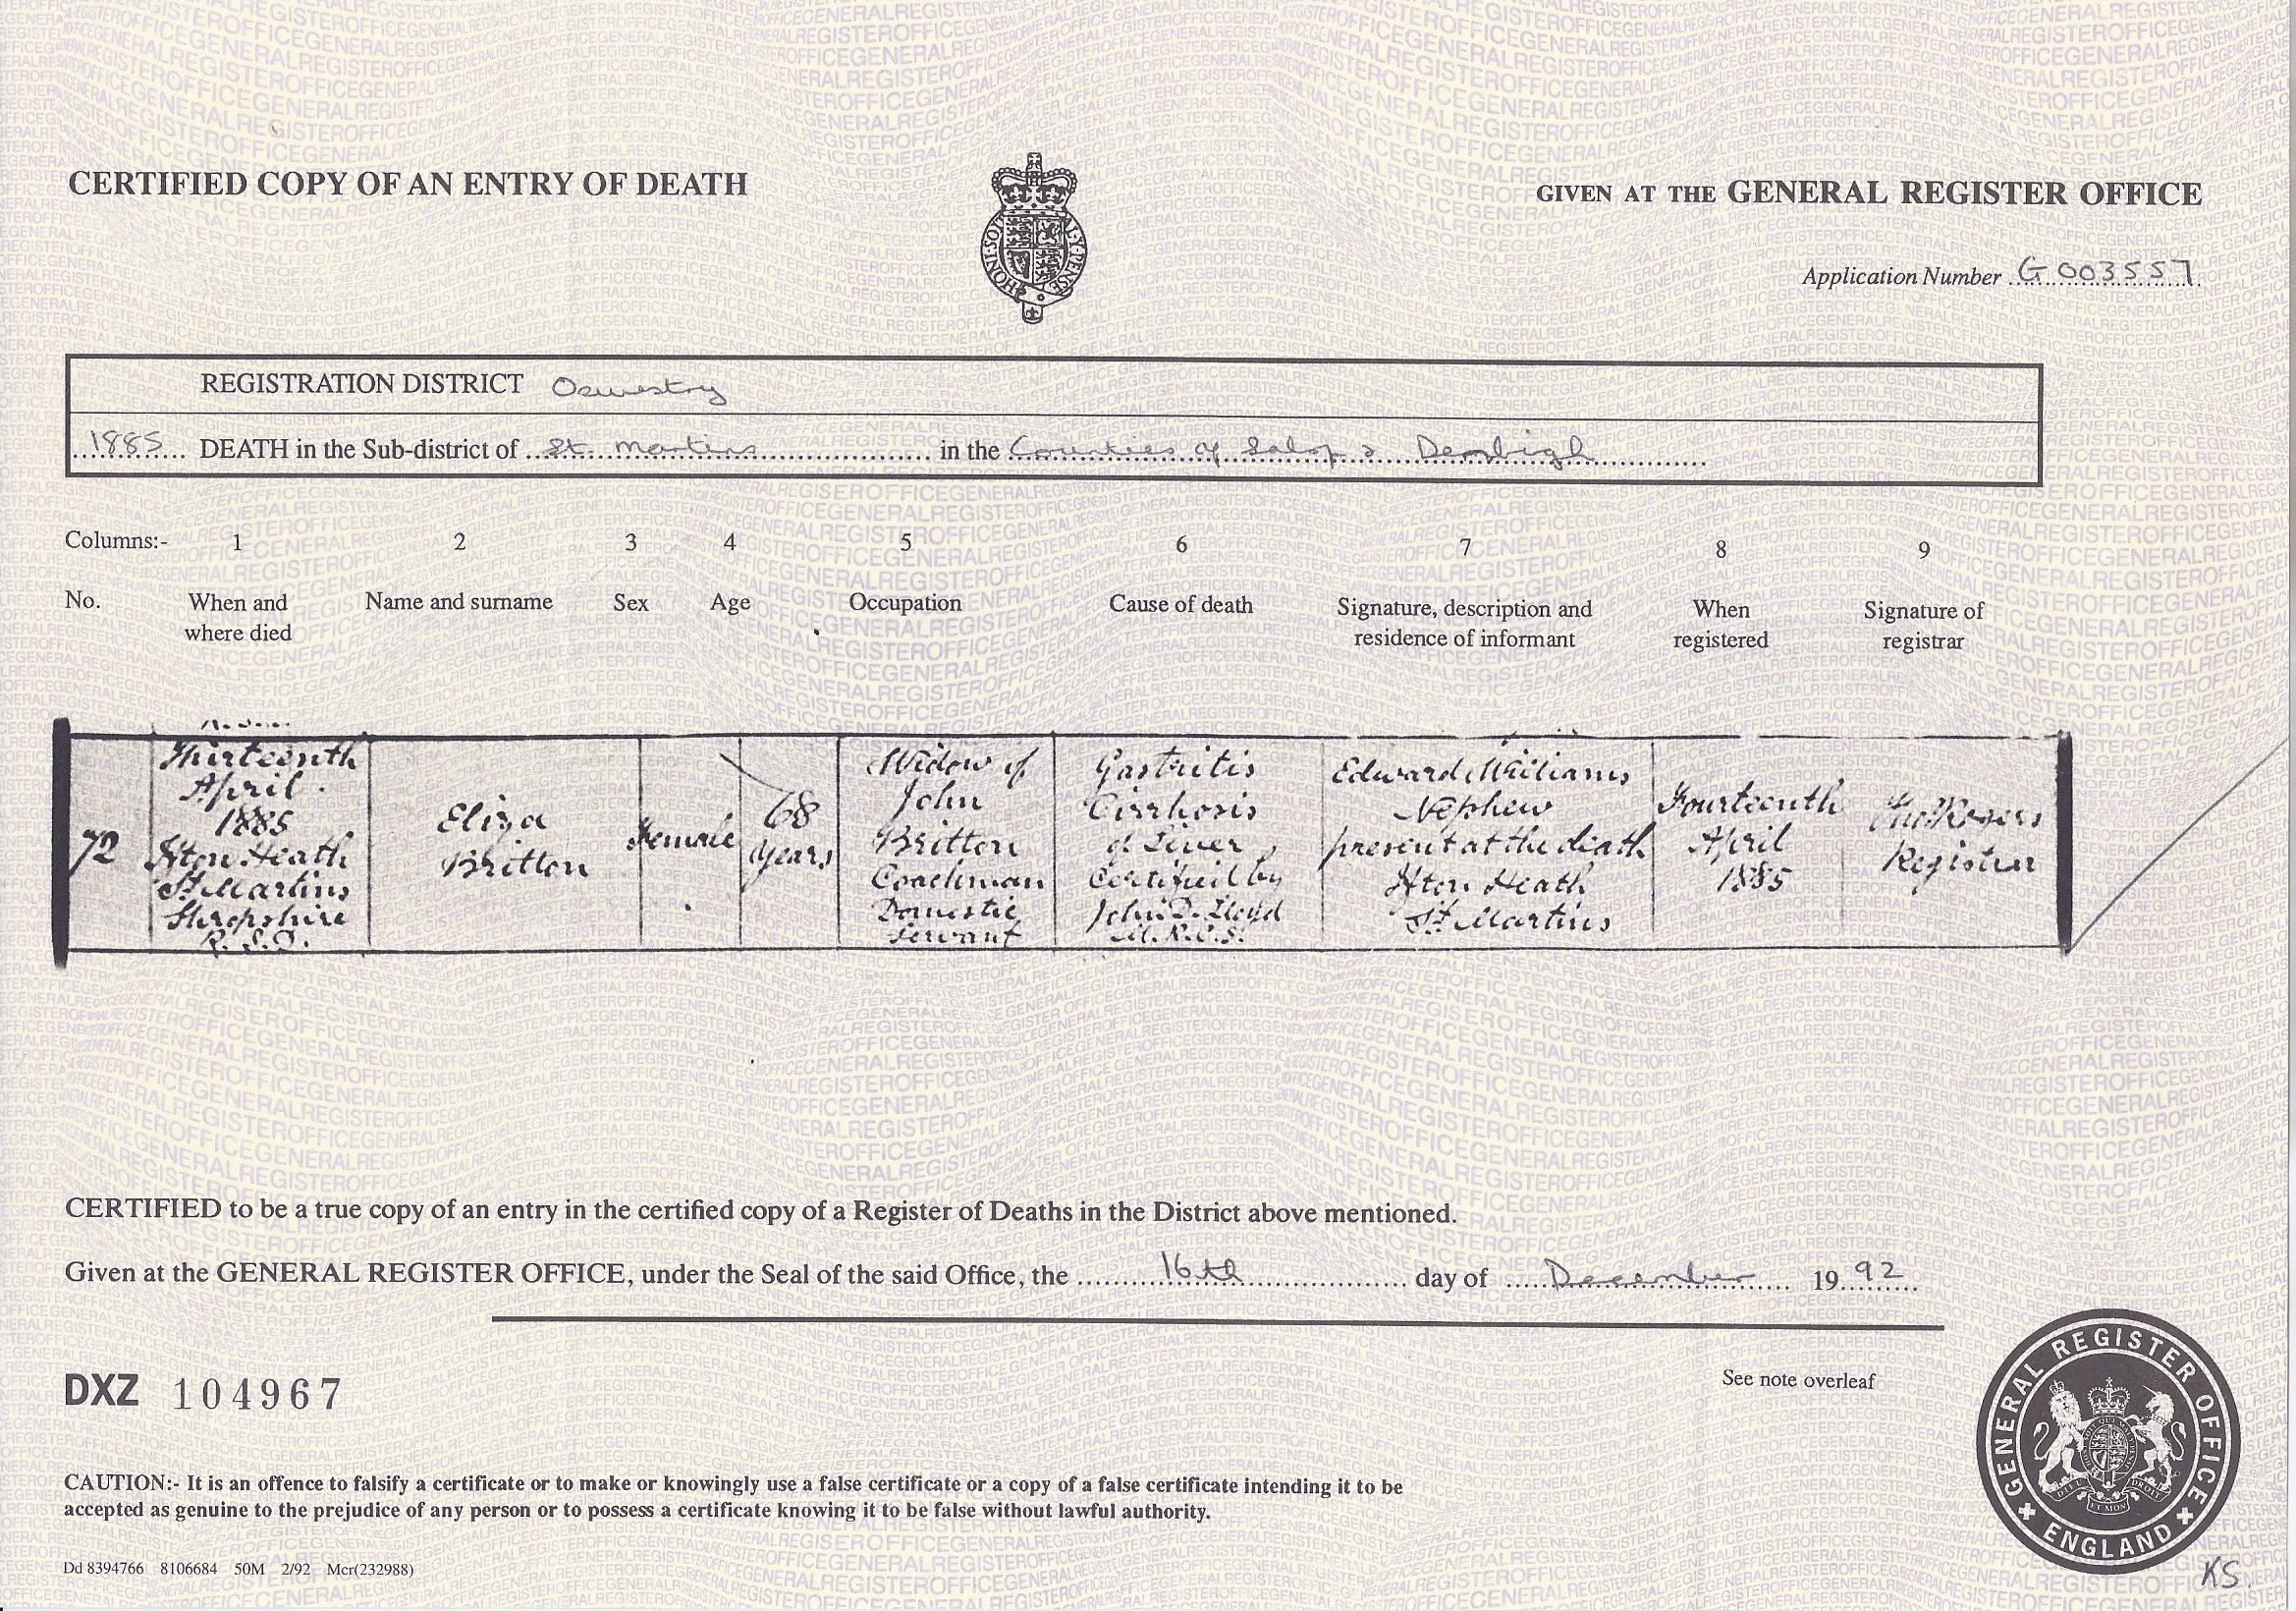 CERTIFIED COPY OF AN ENTRY OF DEATH
GIVEN AT THE GENERAL REGISTER OFFICE
HONI·SOIT
MAL·Y·PENSE
Application Number G 003557
REGISTRATION DISTRICT Oswestry
1885 DEATH in the Sub-district of St. Martins in the Counties of Salop & Denbigh
Columns:- 1 2 3 4 5 6 7 8 9
No. When and where died Name and surname Sex Age Occupation Cause of death Signature, description and residence of informant When registered Signature of registrar
72
Thirteenth
April
1885
Ifton Heath
St. Martins
Shropshire
R.S.O.
Eliza
Britton
Female
68
years
Widow of
John
Britton
Coachman
Domestic
Servant
Gastritis
Cirrhosis
of Liver
Certified by
John D. Lloyd
M.R.C.S.
Edward Williams
Nephew
present at the death
Ifton Heath
St. Martins
Fourteenth
April
1885
Rogers
Registrar
CERTIFIED to be a true copy of an entry in the certified copy of a Register of Deaths in the District above mentioned.
Given at the GENERAL REGISTER OFFICE, under the Seal of the said Office, the 16th day of December 1992
DXZ 104967
See note overleaf
GENERAL REGISTER OFFICE
ENGLAND
CAUTION:- It is an offence to falsify a certificate or to make or knowingly use a false certificate or a copy of a false certificate intending it to be
accepted as genuine to the prejudice of any person or to possess a certificate knowing it to be false without lawful authority.
Dd 8394766 8106684 50M 2/92 Mcr(232988)
KS.